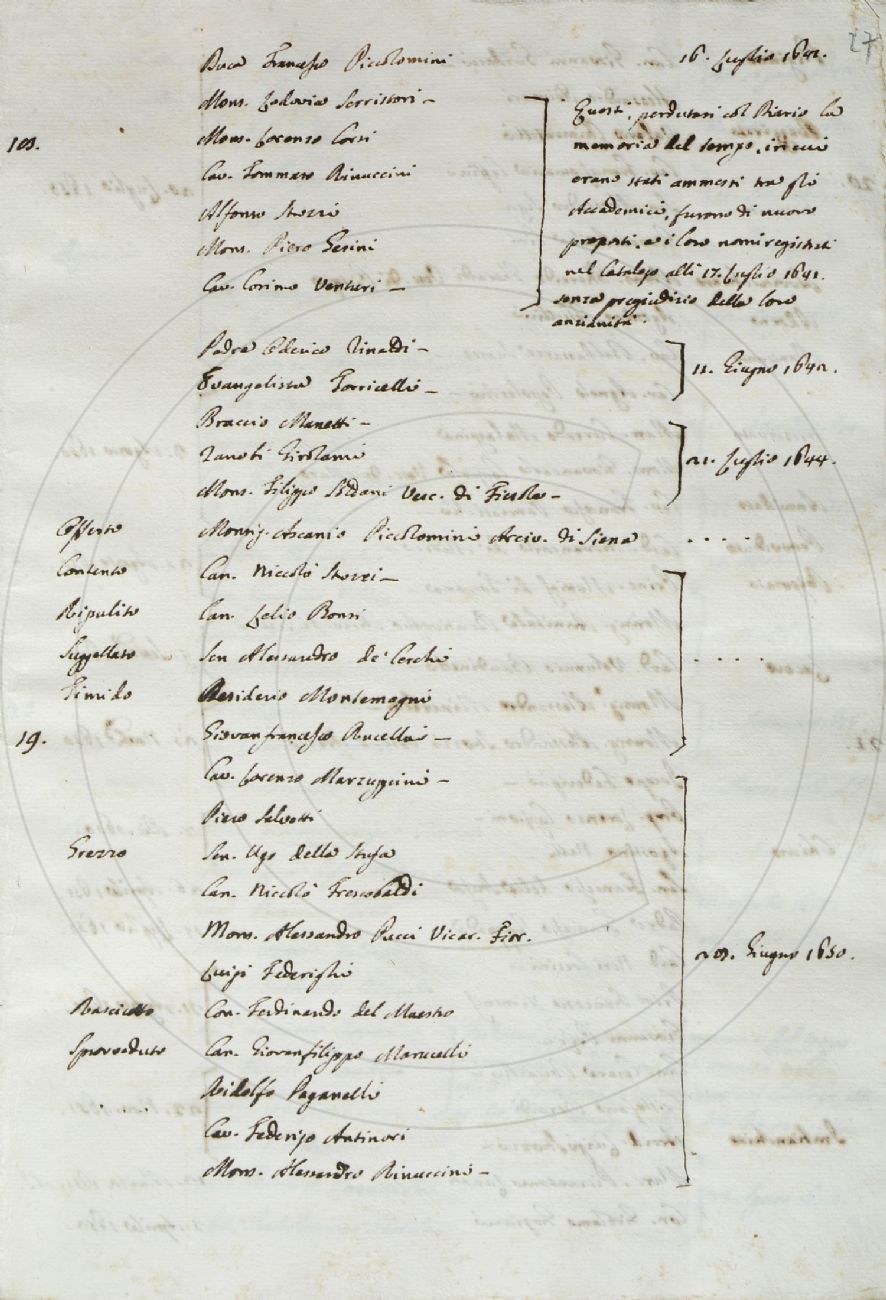 27
Duca Francesco Piccolomini 16. Luglio 1641.
Mons. Lodovico Serristori -
18. Mons. Lorenzo Corsi
Cav. Tommaso Rinuccini
Alfonso Strozzi
Mons. Piero Gerini
Cav. Cosimo Venturi -
Questi, perdutasi col Diario la
memoria del tempo, in cui
erano stati ammessi tra gli
Accademici, furono di nuovo
proposti, e i loro nomi registrati
nel Catalogo alli 17. Luglio 1641.
senza pregiudizio della loro
anzianità.
Padre Oderico Rinaldi -
Evangelista Torricelli - 11. Giugno 1642.
Braccio Manetti -
Zanobi Girolami 21. Luglio 1644.
Mons. Filippo Soldani Vesc. di Fiesole -
Offerto Monsig. Ascanio Piccolomini Arciv. di Siena . . . .
Contento Can. Niccolò Strozzi -
Ripulito Can. Lelio Bonsi
Suggellato Sen. Alessandro de' Cerchi . . . .
Timido Desiderio Montemagni
19. Giovanfrancesco Rucellai -
Cav. Lorenzo Marzuppini -
Piero Salvetti
Grezzo Sen. Ugo della Stufa
Can. Niccolò Frescobaldi
Mons. Alessandro Pucci Vicar. Fior.
Luigi Federighi 28. Giugno 1650.
Rasciutto Con. Ferdinando del Maestro
Sprovveduto Can. Giovanfilippo Marucelli
Ridolfo Paganelli
Cav. Federigo Antinori
Mons. Alessandro Rinuccini -